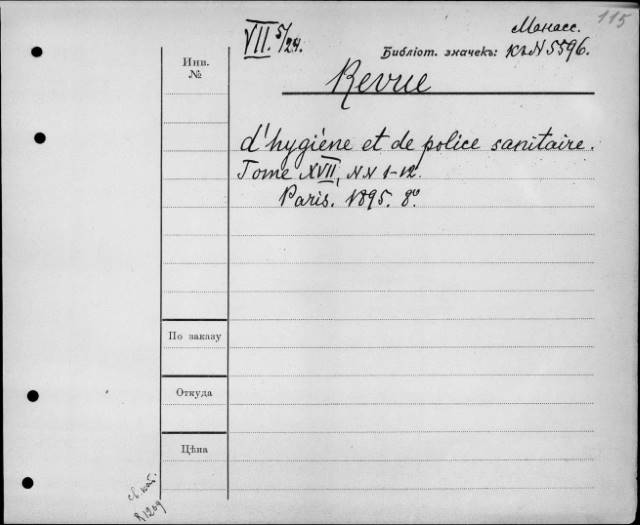 115
VII. 5/24.
Манасс.
Библіот. значекъ: къ N 5596.
Инв. №
Revue
d'hygiène et de police sanitaire.
Tome XVII, NN 1-12.
Paris. 1895. 8º.
По заказу
Откуда
Цѣна